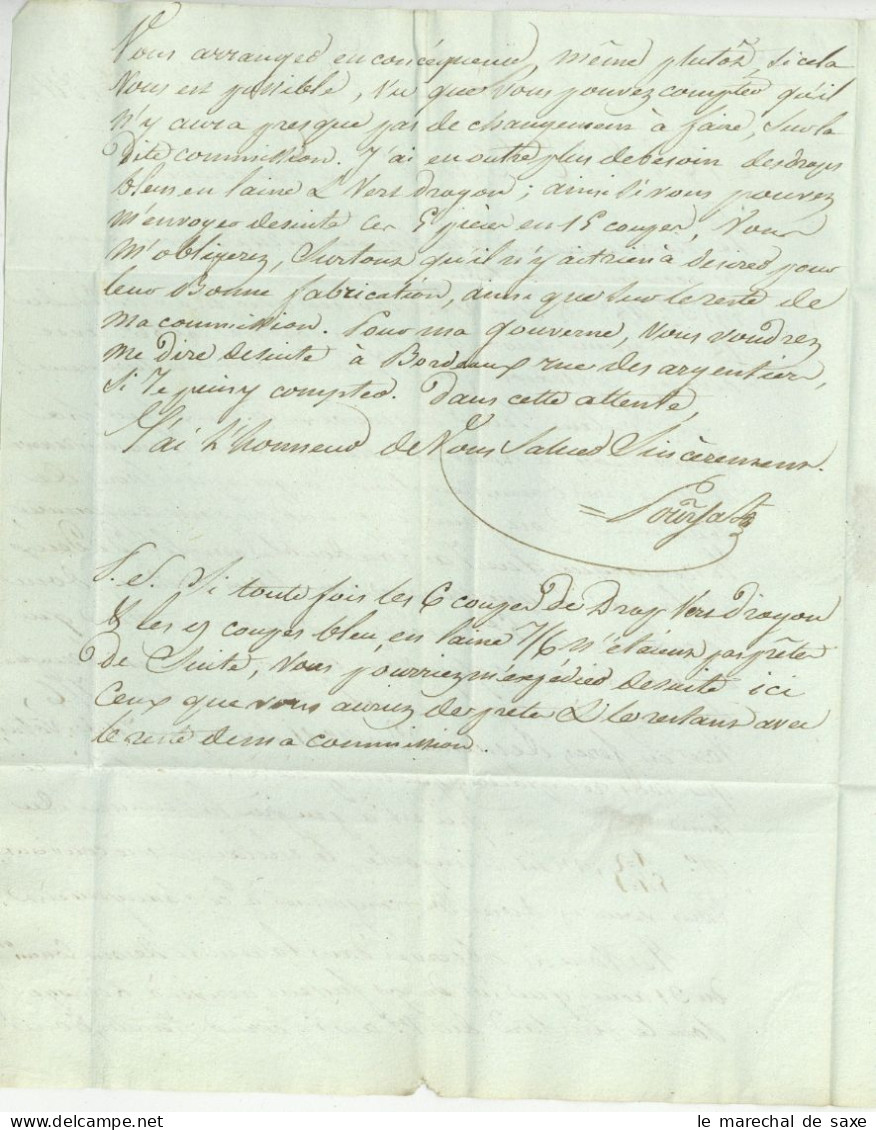 Vous arranger en conséquence, même plutôt, si cela
Vous est possible, vu que vous pouvez compter qu'il
n'y aura presque pas de changement à faire, sur la
dite commission. J'ai en outre plus de besoin des draps
bleu en laine & Vert dragon; ainsi si vous pouvez
m'envoyer desuite ces 5 pièces en 15 coupes, Vous
m'obligerez, surtout qu'il n'y ait rien à désirer pour
leur Bonne fabrication, ainsi que sur le reste de
ma commission. Pour ma gouverne, vous voudrez
me dire desuite à Bordeaux rue des argentiers,
si Je puis y compter. Dans cette attente,
J'ai L'honneur de Vous saluer Sincèrement.
P. S. Si toute fois les 6 coupes de Drap Vert Dragon
& les 9 coupes bleu, en laine 7/6 n'étaient pas prêtes
de Suite, Vous pourriez m'expédier desuite ici
Ceux que vous auriez de prêts & le restant avec
le reste de ma commission.
le marechal de saxe